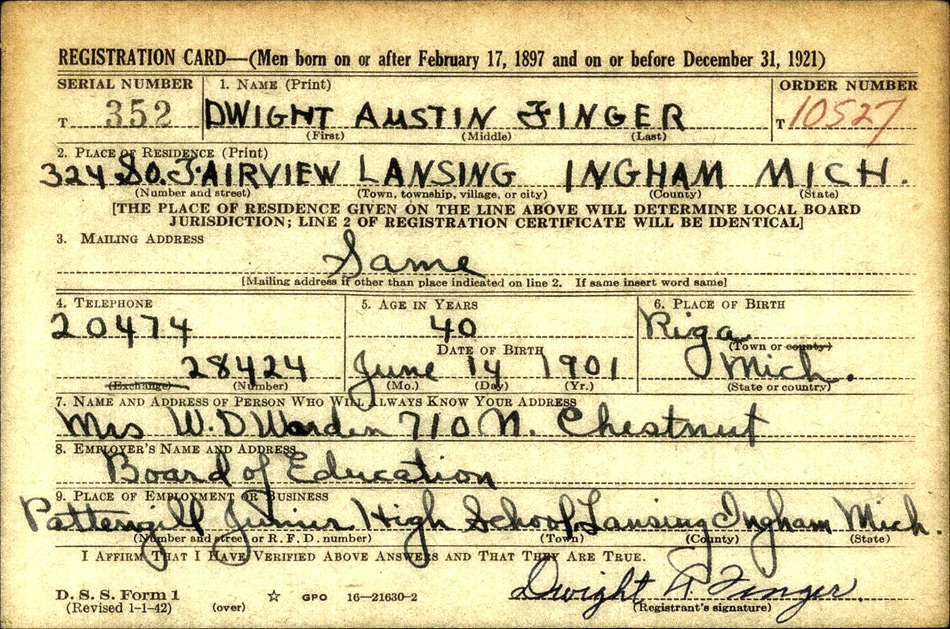 REGISTRATION CARD—(Men born on or after February 17, 1897 and on or before December 31, 1921)
SERIAL NUMBER 1. NAME (Print) ORDER NUMBER
T 352 DWIGHT AUSTIN FINGER T 10527
(First) (Middle) (Last)
2. PLACE OF RESIDENCE (Print)
324 SO. FAIRVIEW LANSING INGHAM MICH.
(Number and street) (Town, township, village, or city) (County) (State)
[THE PLACE OF RESIDENCE GIVEN ON THE LINE ABOVE WILL DETERMINE LOCAL BOARD
JURISDICTION; LINE 2 OF REGISTRATION CERTIFICATE WILL BE IDENTICAL]
3. MAILING ADDRESS
Same
[Mailing address if other than place indicated on line 2. If same insert word same]
4. TELEPHONE 5. AGE IN YEARS 6. PLACE OF BIRTH
20474 40 Riga
DATE OF BIRTH (Town or county)
28424 June 14 1901 Mich.
(Exchange) (Number) (Mo.) (Day) (Yr.) (State or country)
7. NAME AND ADDRESS OF PERSON WHO WILL ALWAYS KNOW YOUR ADDRESS
Mrs W. D Warden 710 N. Chestnut
8. EMPLOYER'S NAME AND ADDRESS
Board of Education
9. PLACE OF EMPLOYMENT OR BUSINESS
Pattengill Junior High School, Lansing Ingham Mich.
(Number and street or R. F. D. number) (Town) (County) (State)
I AFFIRM THAT I HAVE VERIFIED ABOVE ANSWERS AND THAT THEY ARE TRUE.
Dwight A. Finger.
D. S. S. Form 1
(Revised 1-1-42) (over) ☆ GPO 16—21630-2 (Registrant's signature)